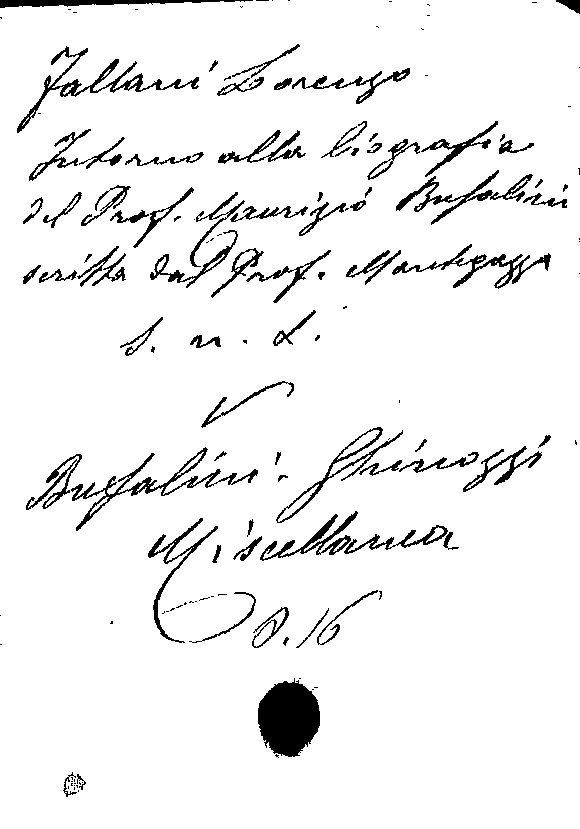 Fallani Lorenzo
Intorno alla biografia
del Prof. Maurizio Bufalini
scritta dal Prof. Mantegazza
s. n. L.
V
Bufalini. Ghinozzi
Miscellanea
8.16